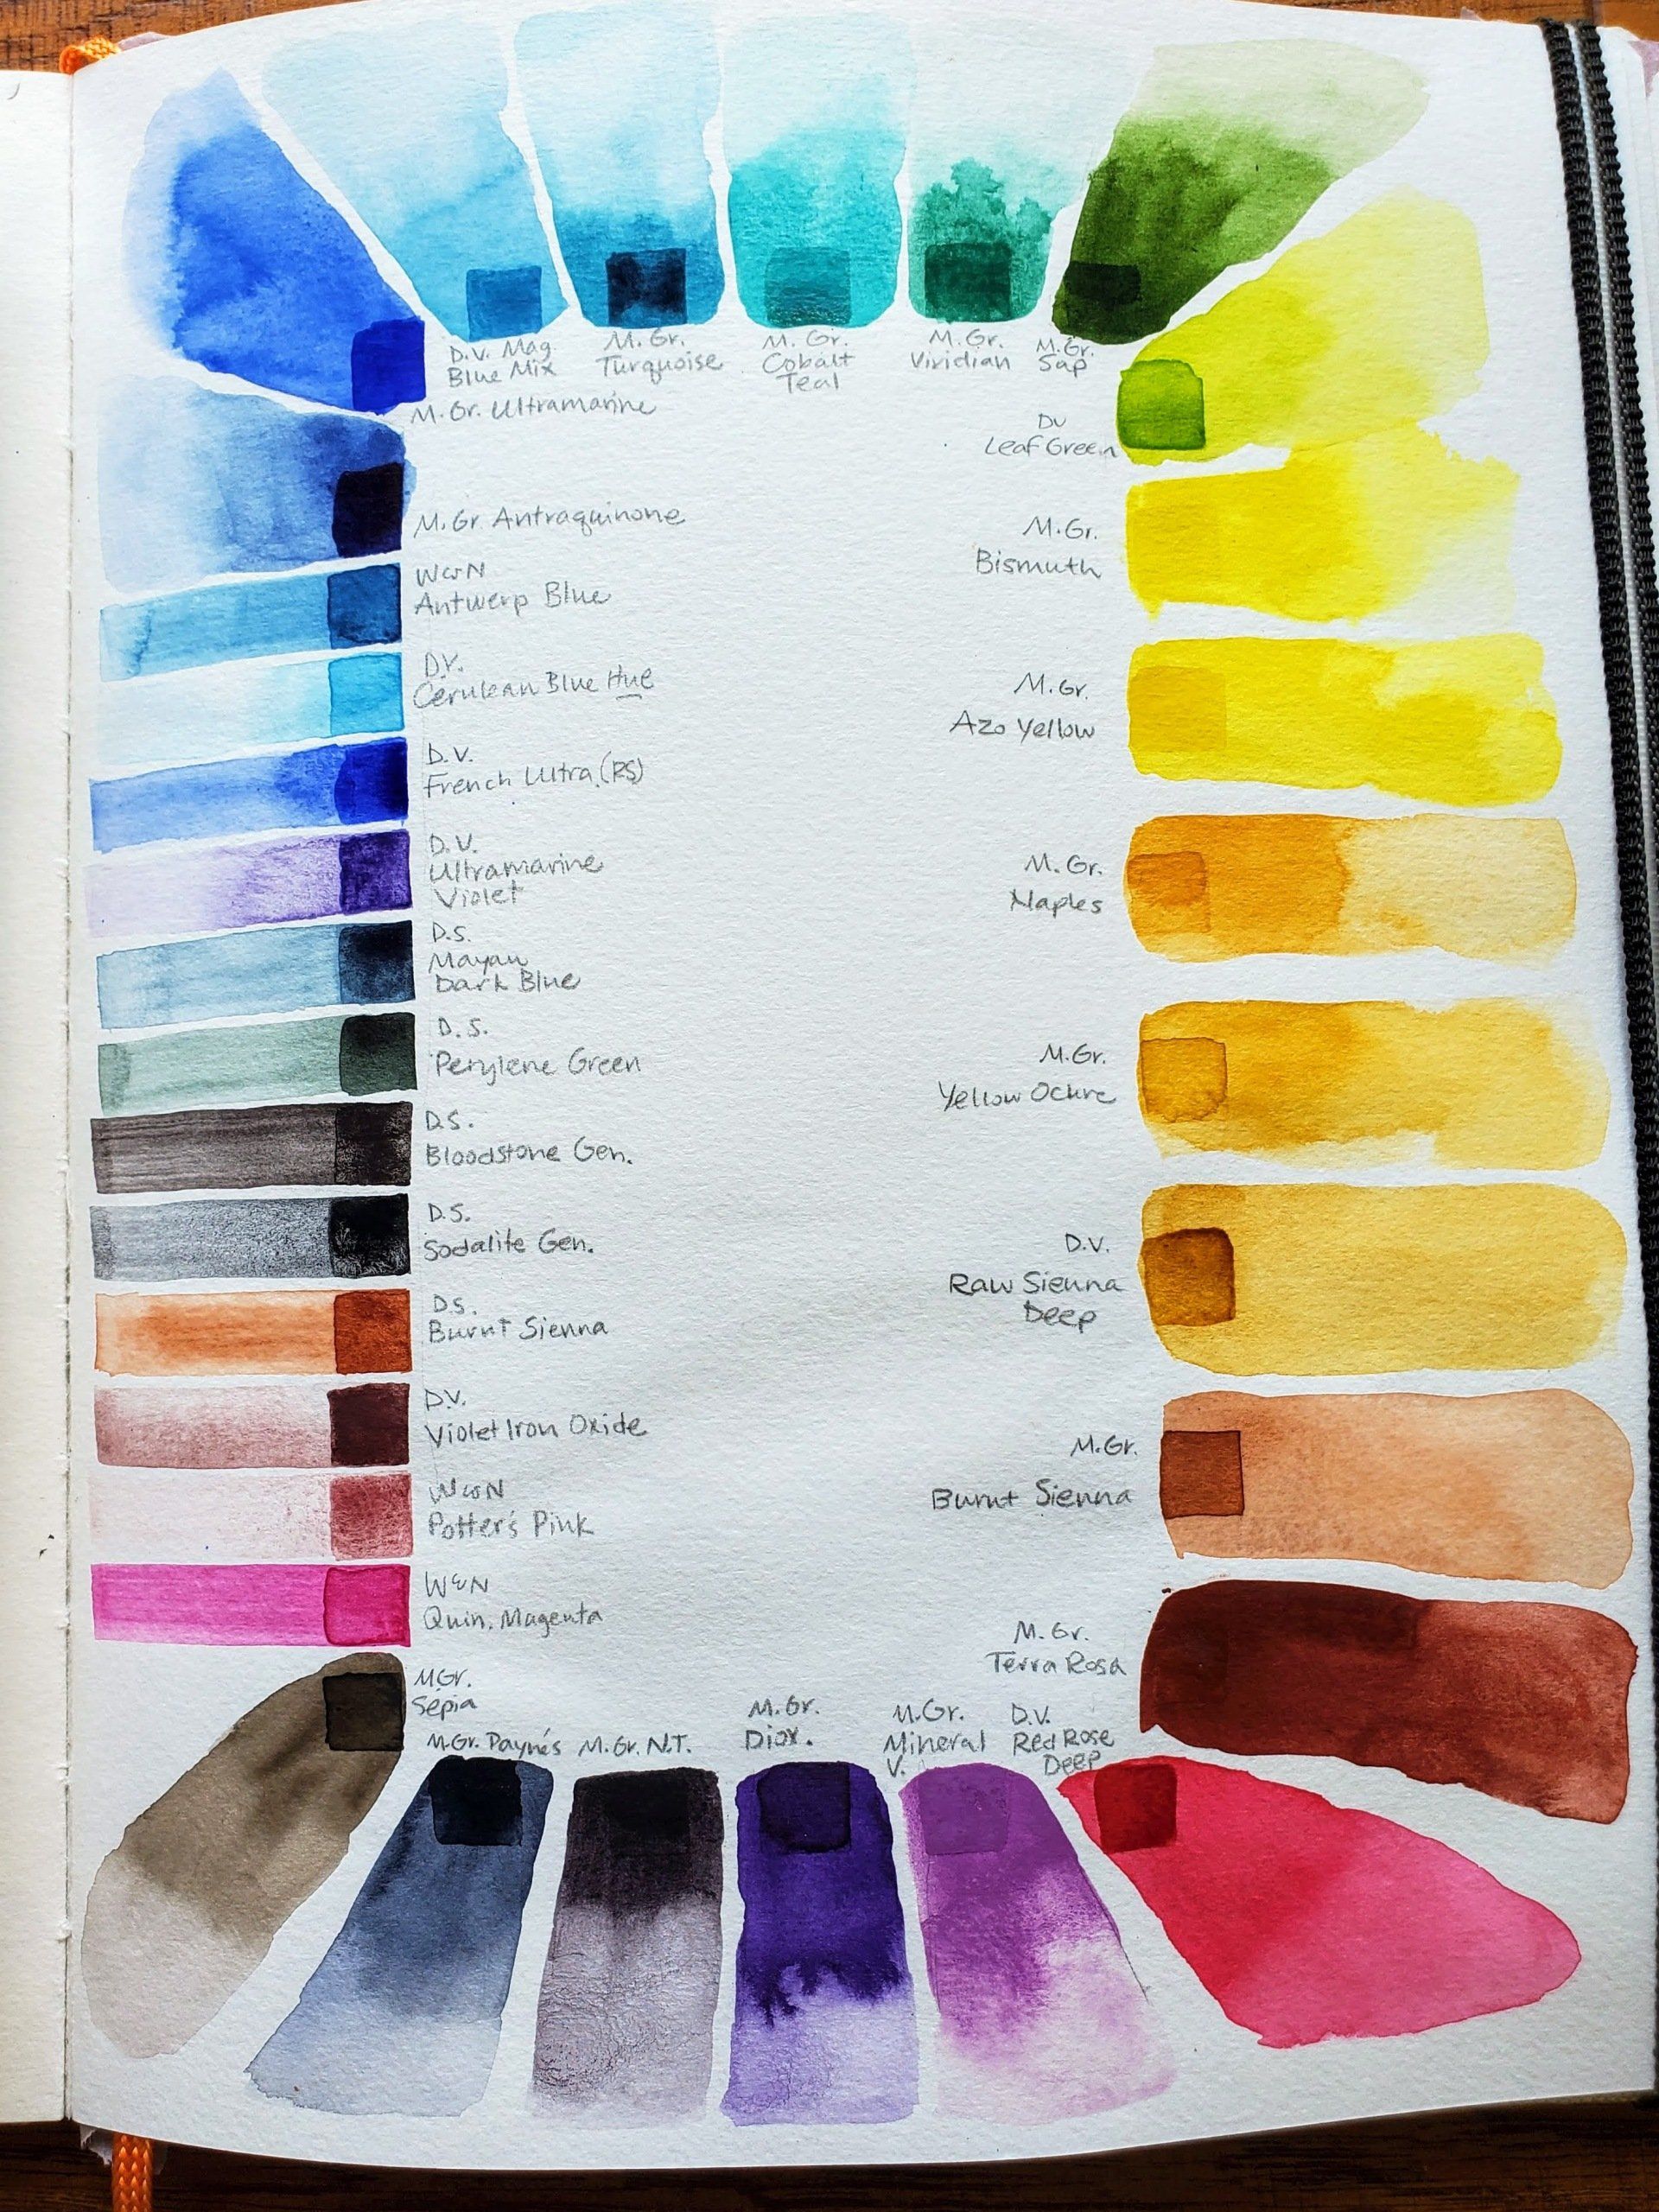 D.V. Mag
Blue Mix
M. Gr.
Turquoise
M. Gr.
Cobalt
Teal
M. Gr.
Viridian
M. Gr.
Sap
M. Gr. Ultramarine
DV
Leaf Green
M. Gr. Antraquinone
M. Gr.
Bismuth
W&N
Antwerp Blue
D.V.
Cerulean Blue Hue
M. Gr.
Azo Yellow
D.V.
French Ultra. (RS)
D.V.
Ultramarine
Violet
M. Gr.
Naples
D.S.
Mayan
Dark Blue
D.S.
Perylene Green
M. Gr.
Yellow Ochre
D.S.
Bloodstone Gen.
D.S.
Sodalite Gen.
D.V.
Raw Sienna
Deep
D.S.
Burnt Sienna
D.V.
Violet Iron Oxide
M. Gr.
Burnt Sienna
W&N
Potter's Pink
W&N
Quin. Magenta
M. Gr.
Terra Rosa
M Gr.
Sepia
M. Gr. Payne's
M. Gr. N.T.
M. Gr.
Diox.
M. Gr.
Mineral
V.
D.V.
Red Rose
Deep